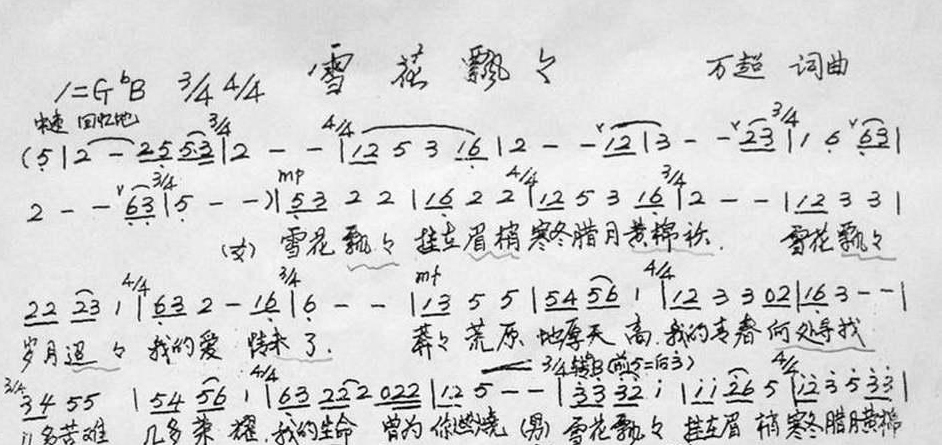 雪花飘々 万超 词曲
1=G ♭B 3/4 4/4
中速 回忆地
3/4 4/4 3/4
(5|2 - 25 53|2 - - |12 5 3 16|2 - - 12|3 - - 23|1 6 63|
3/4 mp 4/4 3/4
2 - - 63|5 - - )|53 2 2|16 2 2|12 5 3 16|2 - - |12 3 3|
(女) 雪花飘々 挂在眉梢 寒冬腊月黄棉袄. 雪花飘々
4/4 3/4 mf 4/4
22 23 1|63 2 - 16|6 - - |13 5 5|54 56 1|12 3 3 02|16 3 - - |
岁月迢々 我的爱 情来了. 莽々荒原 地厚天 高.我的青春何处寻找
3/4转B(前5=后3)
3/4 4/4 4/4
34 55 |54 56 1|63 222 022|1.2 5 - - |33 32 1|11 26 5|123 5 33|
几多苦难 几多荣 耀.我的生命 曾为你燃烧 (男) 雪花飘々 挂在眉 梢 寒冬腊月黄棉